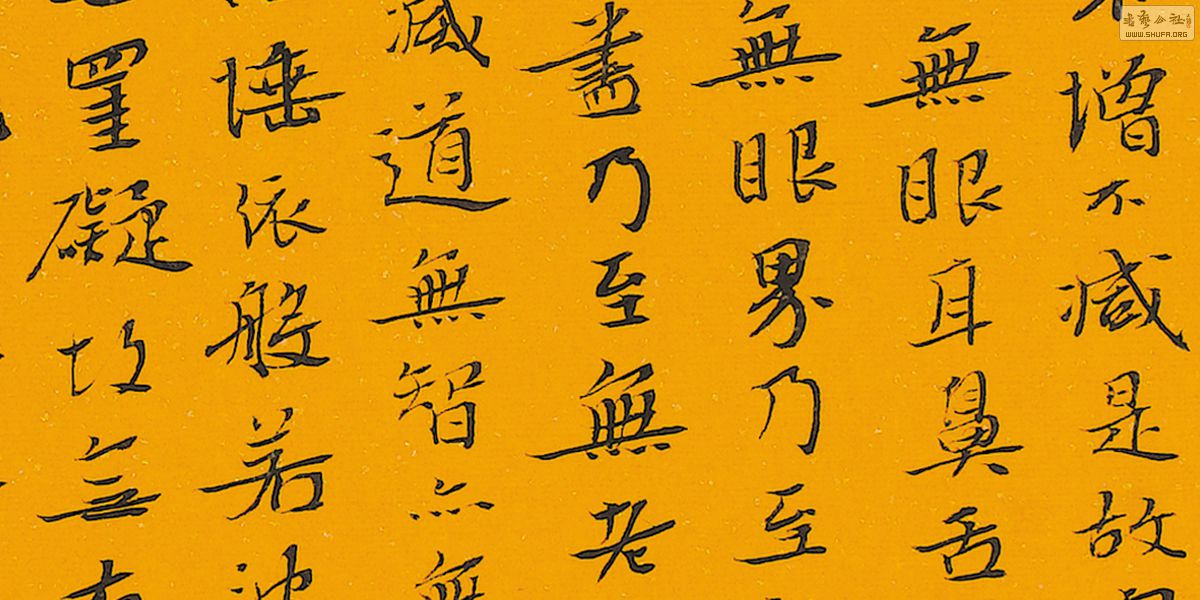 增不減是故
無眼耳鼻舌
無眼界乃至
盡乃至無老
滅道無智亦無
埵依般若波
罣礙故無有
書藝公社
WWW.SHUFA.ORG